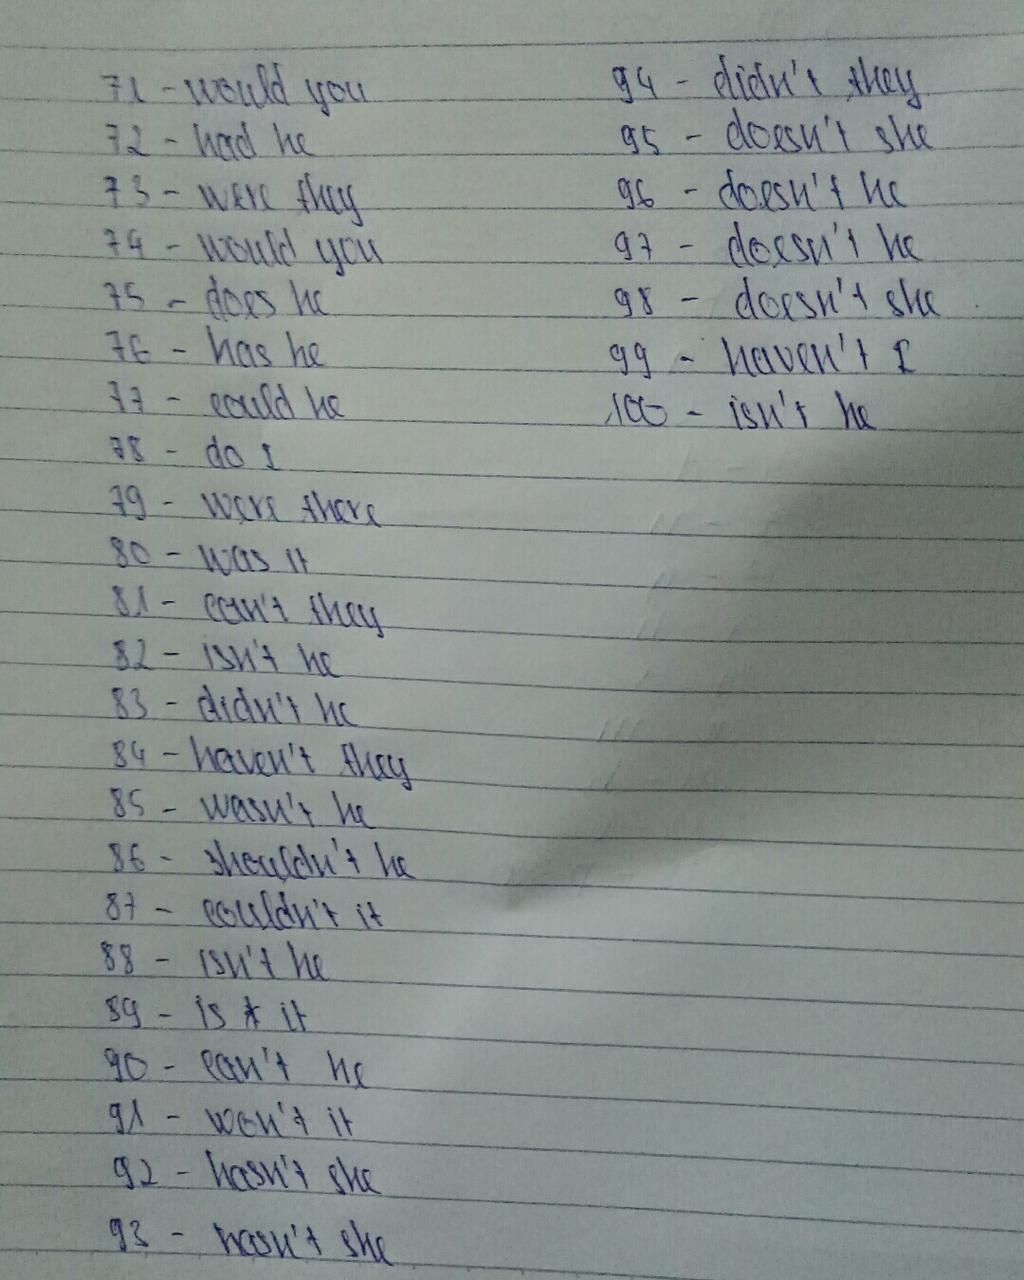 71 - would you
72 - had he
73 - were they
74 - would you
75 - does he
76 - has he
77 - could he
78 - do I
79 - were there
80 - was it
81 - can't they
82 - isn't he
83 - didn't he
84 - haven't they
85 - wasn't he
86 - shouldn't he
87 - couldn't it
88 - isn't he
89 - is it
90 - can't he
91 - won't it
92 - hasn't she
93 - hasn't she
94 - didn't they
95 - doesn't she
96 - doesn't he
97 - doesn't he
98 - doesn't she
99 - haven't I
100 - isn't he